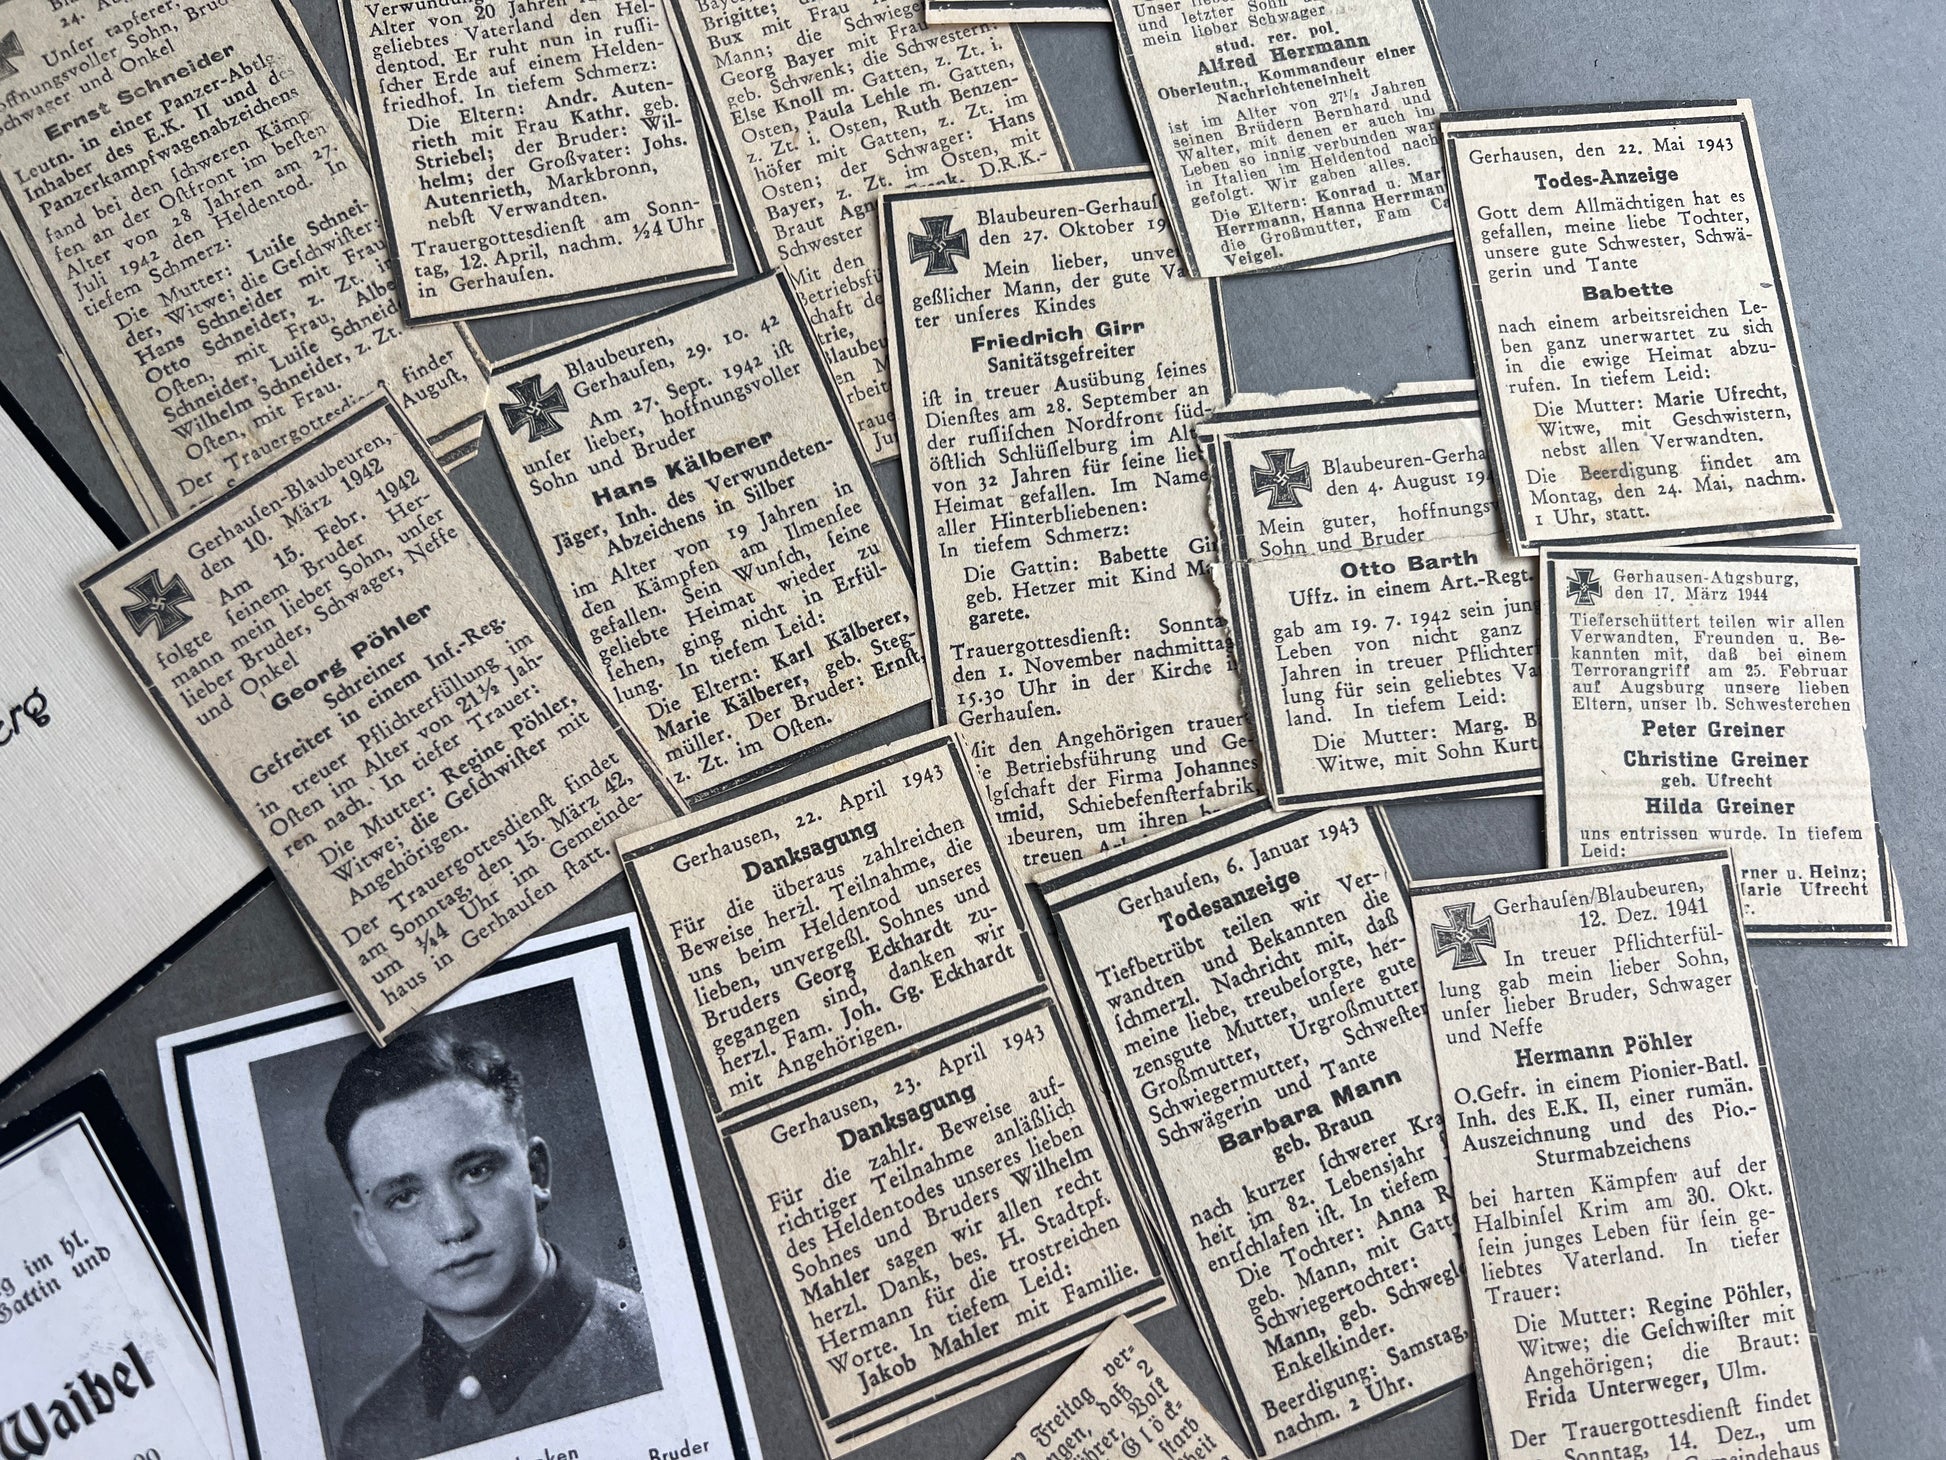 24. Aug
Unſer tapferer,
offnungsvoller Sohn, Bruder
Schwager und Onkel
Ernst Schneider
Leutn. in einer Panzer-Abtlg.
Inhaber des E.K. II und des
Panzerkampfwagenabzeichens
fand bei den ſchweren Kämp-
fen an der Oſtfront im beſten
Alter von 28 Jahren am 27.
Juli 1942 den Heldentod. In
tiefem Schmerz:
Die Mutter: Luiſe Schnei-
der, Witwe; die Geſchwiſter:
Hans Schneider mit Frau
Otto Schneider, z. Zt. im
Oſten, mit Frau, Albe
Schneider, Luiſe Schneide
Wilhelm Schneider, z. Zt.
Oſten, mit Frau.
Der Trauergottesdie findet
August,
Verwundung
Alter von 20 Jahren
geliebtes Vaterland den Hel-
dentod. Er ruht nun in ruſſi-
ſcher Erde auf einem Helden-
friedhof. In tiefem Schmerz:
Die Eltern: Andr. Auten-
rieth mit Frau Kathr. geb.
Striebel; der Bruder: Wil-
helm; der Großvater: Johs.
Autenrieth, Markbronn,
nebſt Verwandten.
Trauergottesdienſt am Sonn-
tag, 12. April, nachm. ½4 Uhr
in Gerhauſen.
Brigitte;
Bux mit Frau
Mann; die Schwieger
Georg Bayer mit Frau
geb. Schwenk; die Schwestern:
Else Knoll m. Gatten, z. Zt. i.
Osten, Paula Lehle m. Gatten,
z. Zt. i. Osten, Ruth Benzen-
höfer mit Gatten, z. Zt. im
Osten; der Schwager: Hans
Bayer, z. Zt. im Osten, mit
Braut Agn D.R.K.-
Schwester
Mit den
Betriebsfü
chaft de
trie,
Blaubeu
en M
rbeit
raue
Ju
Unser lieber
und letzter Sohn
mein lieber Schwager
stud. rer. pol.
Alfred Herrmann
Oberleutn., Kommandeur einer
Nachrichteneinheit
ist im Alter von 27½ Jahren
seinen Brüdern Bernhard und
Walter, mit denen er auch im
Leben so innig verbunden war
in Italien im Heldentod nach
gefolgt. Wir gaben alles.
Die Eltern: Konrad u. Mar
Herrmann, Hanna Herrman
die Großmutter, Fam Ca
Veigel.
Gerhausen, den 22. Mai 1943
Todes-Anzeige
Gott dem Allmächtigen hat es
gefallen, meine liebe Tochter,
unsere gute Schwester, Schwä-
gerin und Tante
Babette
nach einem arbeitsreichen Le-
ben ganz unerwartet zu sich
in die ewige Heimat abzu-
rufen. In tiefem Leid:
Die Mutter: Marie Ufrecht,
Witwe, mit Geschwistern,
nebst allen Verwandten.
Die Beerdigung findet am
Montag, den 24. Mai, nachm.
1 Uhr, statt.
Blaubeuren-Gerhauſ
den 27. Oktober 19
Mein lieber, unver
geßlicher Mann, der gute Va
ter unſeres Kindes
Friedrich Girr
Sanitätsgefreiter
iſt in treuer Ausübung ſeines
Dienſtes am 28. September an
der ruſſiſchen Nordfront ſüd-
öſtlich Schlüſſelburg im Alt
von 32 Jahren für ſeine lie
Heimat gefallen. Im Name
aller Hinterbliebenen:
In tiefem Schmerz:
Die Gattin: Babette Gi
geb. Hetzer mit Kind Ma
garete.
Trauergottesdienſt: Sonnta
den 1. November nachmittag
15.30 Uhr in der Kirche i
Gerhauſen.
Mit den Angehörigen trauer
e Betriebsführung und Ge
lgſchaft der Firma Johannes
mid, Schiebefenſterfabrik,
ubeuren, um ihren
treuen
Blaubeuren,
Gerhauſen, 29. 10. 42
Am 27. Sept. 1942 iſt
unſer lieber, hoffnungsvoller
Sohn und Bruder
Hans Kälberer
Jäger, Inh. des Verwundeten-
Abzeichens in Silber
im Alter von 19 Jahren in
den Kämpfen am Ilmenſee
gefallen. Sein Wunſch, ſeine
geliebte Heimat wieder zu
ſehen, ging nicht in Erfül-
lung. In tiefem Leid:
Die Eltern: Karl Kälberer,
Marie Kälberer, geb. Steg-
müller. Der Bruder: Ernſt,
z. Zt. im Oſten.
Gerhauſen-Blaubeuren,
den 10. März 1942
Am 15. Febr. 1942
folgte ſeinem Bruder Her-
mann mein lieber Sohn, unſer
lieber Bruder, Schwager, Neffe
und Onkel
Georg Pöhler
Schreiner
Gefreiter in einem Inf.-Reg.
in treuer Pflichterfüllung im
Oſten im Alter von 21½ Jah-
ren nach. In tiefer Trauer:
Die Mutter: Regine Pöhler,
Witwe; die Geſchwiſter mit
Angehörigen.
Der Trauergottesdienſt findet
am Sonntag, den 15. März 42,
um ¼4 Uhr im Gemeinde-
haus in Gerhauſen ſtatt.
Blaubeuren-Gerha
den 4. August 194
Mein guter, hoffnungsv
Sohn und Bruder
Otto Barth
Uffz. in einem Art.-Regt.
gab am 19. 7. 1942 sein jun
Leben von nicht ganz
Jahren in treuer Pflichterf
lung für sein geliebtes Va
land. In tiefem Leid:
Die Mutter: Marg. B
Witwe, mit Sohn Kurt
Gerhausen-Augsburg,
den 17. März 1944
Tieferschüttert teilen wir allen
Verwandten, Freunden u. Be-
kannten mit, daß bei einem
Terrorangriff am 25. Februar
auf Augsburg unsere lieben
Eltern, unser lb. Schwesterchen
Peter Greiner
Christine Greiner
geb. Ufrecht
Hilda Greiner
uns entrissen wurde. In tiefem
Leid:
rner u. Heinz;
Marie Ufrecht
Gerhausen, 22. April 1943
Danksagung
Für die überaus zahlreichen
Beweise herzl. Teilnahme, die
uns beim Heldentod unseres
lieben, unvergeßl. Sohnes und
Bruders Georg Eckhardt zu-
gegangen sind, danken wir
herzl. Fam. Joh. Gg. Eckhardt
mit Angehörigen.
Gerhausen, 23. April 1943
Danksagung
Für die zahlr. Beweise auf-
richtiger Teilnahme anläßlich
des Heldentodes unseres lieben
Sohnes und Bruders Wilhelm
Mahler sagen wir allen recht
herzl. Dank, bes. H. Stadtpf.
Hermann für die trostreichen
Worte. In tiefem Leid:
Jakob Mahler mit Familie.
Gerhauſen, 6. Januar 1943
Todesanzeige
Tiefbetrübt teilen wir Ver-
wandten und Bekannten die
ſchmerzl. Nachricht mit, daß
meine liebe, treubeſorgte, her-
zensgute Mutter, unſere gute
Großmutter, Urgroßmutter
Schwiegermutter, Schweſter
Schwägerin und Tante
Barbara Mann
geb. Braun
nach kurzer ſchwerer Kra
heit im 82. Lebensjahr
entſchlafen iſt. In tiefem
Die Tochter: Anna R
geb. Mann, mit Gatte
Schwiegertochter:
Mann, geb. Schwegl
Enkelkinder.
Beerdigung: Samstag,
nachm. 2 Uhr.
Gerhauſen/Blaubeuren,
12. Dez. 1941
In treuer Pflichterfül-
lung gab mein lieber Sohn,
unſer lieber Bruder, Schwager
und Neffe
Hermann Pöhler
O.Gefr. in einem Pionier-Batl.
Inh. des E.K. II, einer rumän.
Auszeichnung und des Pio.-
Sturmabzeichens
bei harten Kämpfen auf der
Halbinſel Krim am 30. Okt.
ſein junges Leben für ſein ge-
liebtes Vaterland. In tiefer
Trauer:
Die Mutter: Regine Pöhler,
Witwe; die Geſchwiſter mit
Angehörigen; die Braut:
Frida Unterweger, Ulm.
Der Trauergottesdienſt findet
Sonntag, 14. Dez., um
emeindehaus
Freitag ver-
ngen, daß 2
ührer, Wolf
Glöck-
ſtarb
heit
erg
g im hl.
Gattin und
Waibel
ken Bruder